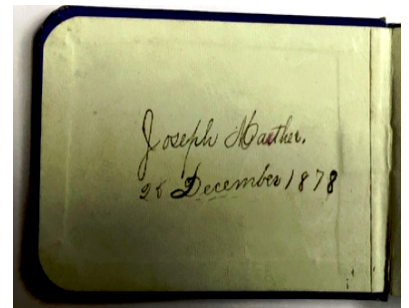 Joseph Maether.
26 December 1878